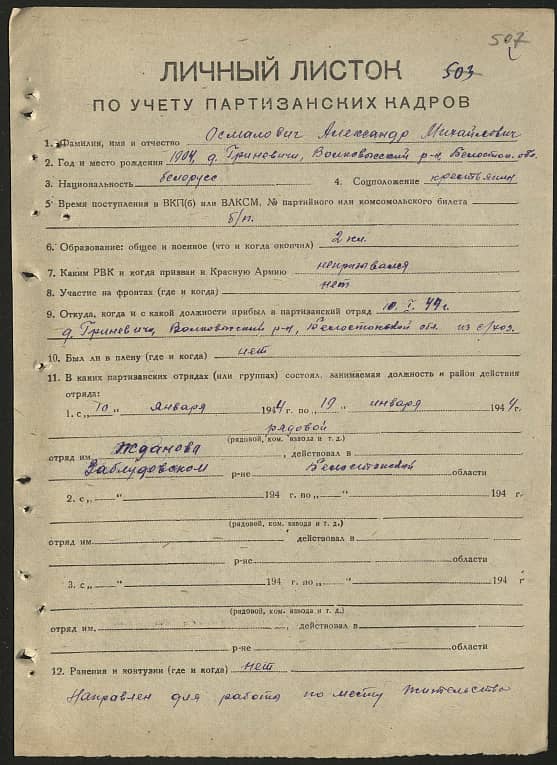 507
ЛИЧНЫЙ ЛИСТОК 503
ПО УЧЕТУ ПАРТИЗАНСКИХ КАДРОВ
1. Фамилия, имя и отчество Осмалович Александр Михайлович
2. Год и место рождения 1904, д. Гриневичи, Волковысский р-н, Белостокс. обл.
3. Национальность белорусс 4. Соцположение крестьянин
5 Время поступления в ВКП(б) или ВЛКСМ, № партийного или комсомольского билета
б/п.
6. Образование: общее и военное (что и когда окончил) 2 кл.
7. Каким РВК и когда призван в Красную Армию непризывался
8. Участие на фронтах (где и когда) нет
9. Откуда, когда и с какой должности прибыл в партизанский отряд 10. I. 44 г.
д. Гриневичи, Волковысский р-н, Белостокской обл. из с/хоз.
10. Был ли в плену (где и когда) нет
11. В каких партизанских отрядах (или группах) состоял, занимаемая должность и район действия
отряда:
1. с „10„ января 1944 г. по „19„ июля 1944 г.
рядовой
(рядовой, ком. взвода и т. д.)
отряд им Жданова, действовал в
Заблудовском р-не Белостокской области
2. с „ “ 194 г. по „ “ 194 г.
(рядовой, ком. взвода и т. д.)
отряд им. , действовал в
р-не области
3. с „ “ 194 г. по „ “ 194 г
(рядовой, ком. взвода и т. д.)
отряд им. , действовал в
р-не области
12. Ранения и контузии (где и когда) нет
Направлен для работы по месту жительства